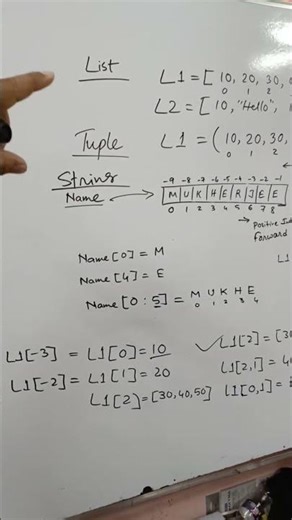 List L1 = [ 10, 20, 30,
0 1 2
L2 = [ 10, "Hello",
Tuple L1 = ( 10, 20, 30,
0 1 2
String
-9 -8 -7 -6 -5 -4 -3 -2 -1
Name → M U K H E R J E E
0 1 2 3 4 5 6 7 8
→ Positive
forward
Name [0] = M
Name [4] = E
Name [0 : 5] = M U K H E
0 1 2 3 4
L1[-3] = L1[0] = 10
L1[-2] = L1[1] = 20
L1[2] = [30,40,50]
✓ L1[2] = [30
L1[2,1] = 4
L1[0,1] =